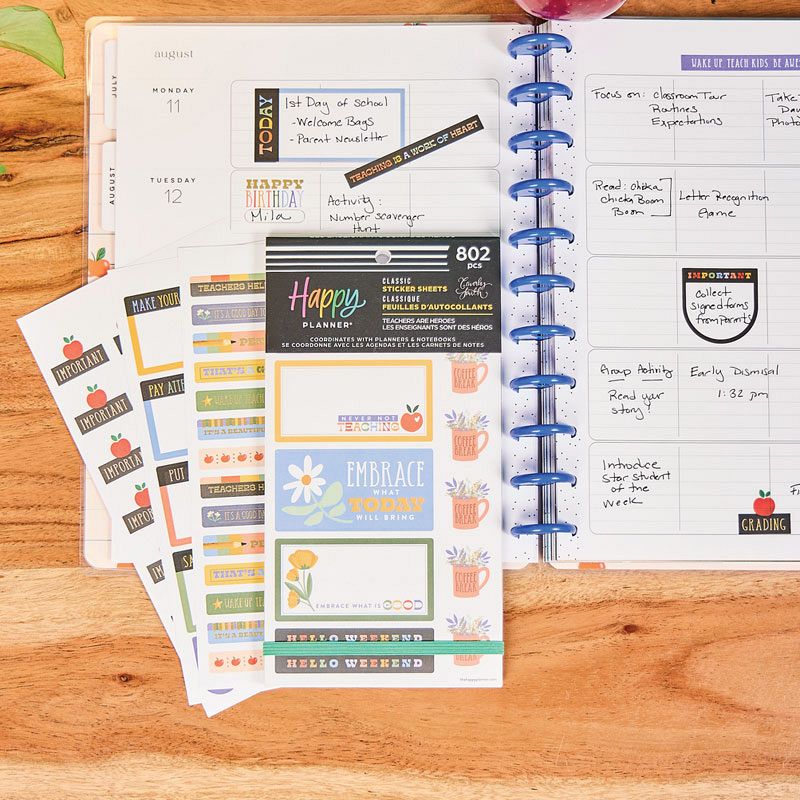 august
JULY
AUGUST
MONDAY
11
TODAY
1st Day of School
- Welcome Bags
- Parent Newsletter
TEACHING IS A WORK OF HEART
TUESDAY
12
HAPPY
BIRTHDAY
Mila
Activity:
Number scavenger
Hunt
WAKE UP TEACH KIDS BE AWE
Focus on: Classroom Tour
Routines
Expectations
Take
Day
Photo
Read: Chicka
chicka Boom
Boom
Letter Recognition
Game
IMPORTANT
Collect
signed forms
from parents
Group Activity
Read your
story!
Early Dismisal
1:32 pm
Introduce
Star student
of the
week
GRADING
802
PCS
Happy
PLANNER®
CLASSIC
STICKER SHEETS
CLASSIQUE
FEUILLES D'AUTOCOLLANTS
TEACHERS ARE HEROES
LES ENSEIGNANTS SONT DES HÉROS
COORDINATES WITH PLANNERS & NOTEBOOKS
SE COORDONNE AVEC LES AGENDAS ET LES CARNETS DE NOTES
NEVER NOT
TEACHING
EMBRACE
WHAT
TODAY
WILL BRING
EMBRACE WHAT IS GOOD
HELLO WEEKEND
HELLO WEEKEND
thehappyplanner.com
COFFEE
BREAK
COFFEE
BREAK
COFFEE
BREAK
COFFEE
BREAK
COFFEE
BREAK
IMPORTANT
IMPORTANT
IMPORTA
IMPO
IM
MAKE YOUR
PAY ATTE
PUT
SA
TEACHERS HEL
IT'S A GOOD DAY TO
PEN
THAT'S A G
WAKE UP TEAC
IT'S A BEAUTIFUL
TEACHERS H
IT'S A GOOD DA
PE
THAT'S A
WAKE UP TE
IT'S A BEAUT